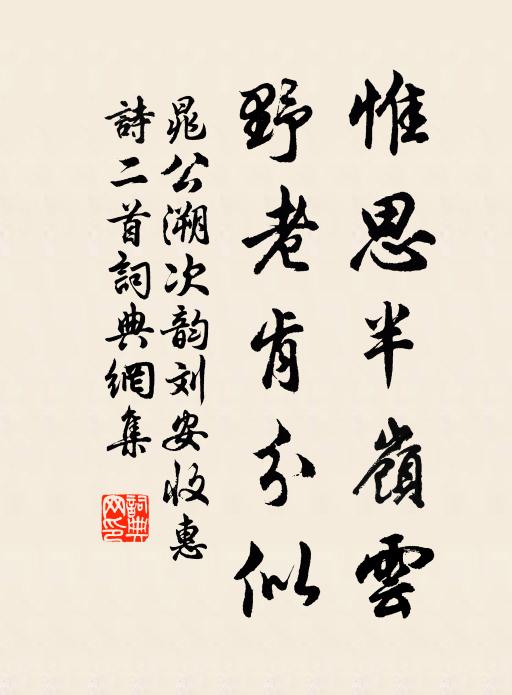 惟思半嶺雲
野老肯分似
晁公溯次韵刘安收惠
詩二首詞典網集
詞典網印